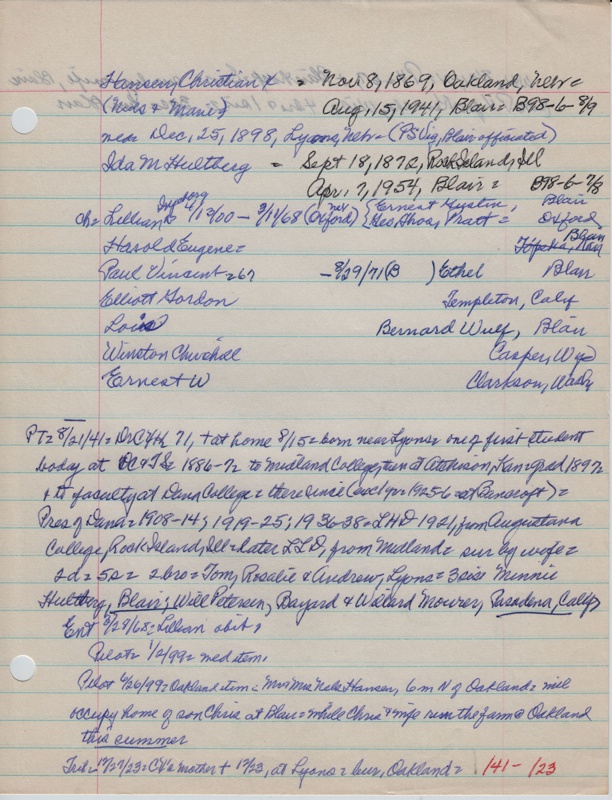 Hansen, Christian X = Nov 8, 1869, Oakland, Nebr =
(Nels & Marie) Aug, 15, 1941, Blair = B98-6-8/9
mar Dec, 25, 1898, Lyons, Nebr = (PSVig, Blair officiated)
Ida M Hultberg = Sept 18, 1872, Rock Island, Ill
Apr, 7, 1954, Blair = B98-6-7/8
Ingeborg nebr Blair
ch = Lillian 1/13/00 - 3/14/68 (Oxford) {Ernest Gustin,
Geo, Thos, Pratt = Oxford
Harold Eugene = Blair
Paul Vincent = 67 - 8/29/71 (B ) Ethel Blair
Elliott Gordon Templeton, Calif
Lois Bernard Wulf, Blair
Winston Churchill Casper, Wyo
Ernest W Clarkson, Wash
PT = 8/21/41 = Dr CXH, 71, + at home 8/15 = born near Lyons = one of first student
body at = 1886-92 to Midland College, then at Atchison, Kan = grad 1897 =
+ to faculty at Dana College = there since (exc 1 yr = 1925-6 = at Bancroft) =
Pres of Dana = 1908-14; 1919-25; 1936-38 = LHD 1921, from Augustana
College, Rock Island, Ill = later LLD, from Midland = sur by wife =
2d = 5s = 2 bro = Tom, Rosalie & Andrew, Lyons = 3 sis = Minnie
Hultberg, Blair; Will Petersen, Bayard & Willard Mowrer, Pasadena, Calif
Ent 3/29/68 = Lillian obit,
Pilot = 1/2/99 = wed item,
Pilot 4/26/99 = Oakland item = Mr & Mrs Nels Hansen, 6 m N of Oakland = will
occupy home of son Chris at Blair = while Chris & wife run the farm @ Oakland
this summer
Trib = 12/27/23 = CX's mother + 12/23, at Lyons = bur, Oakland = 141 - 123